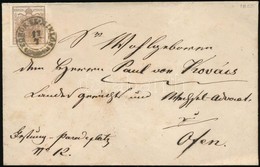 Sr Wohlgeboren
dem Herrn Paul von Kovács
Landes Gerichts und Wechsel-Advocat
zu
Ofen.
Festung-Paradeplatz
No 12.